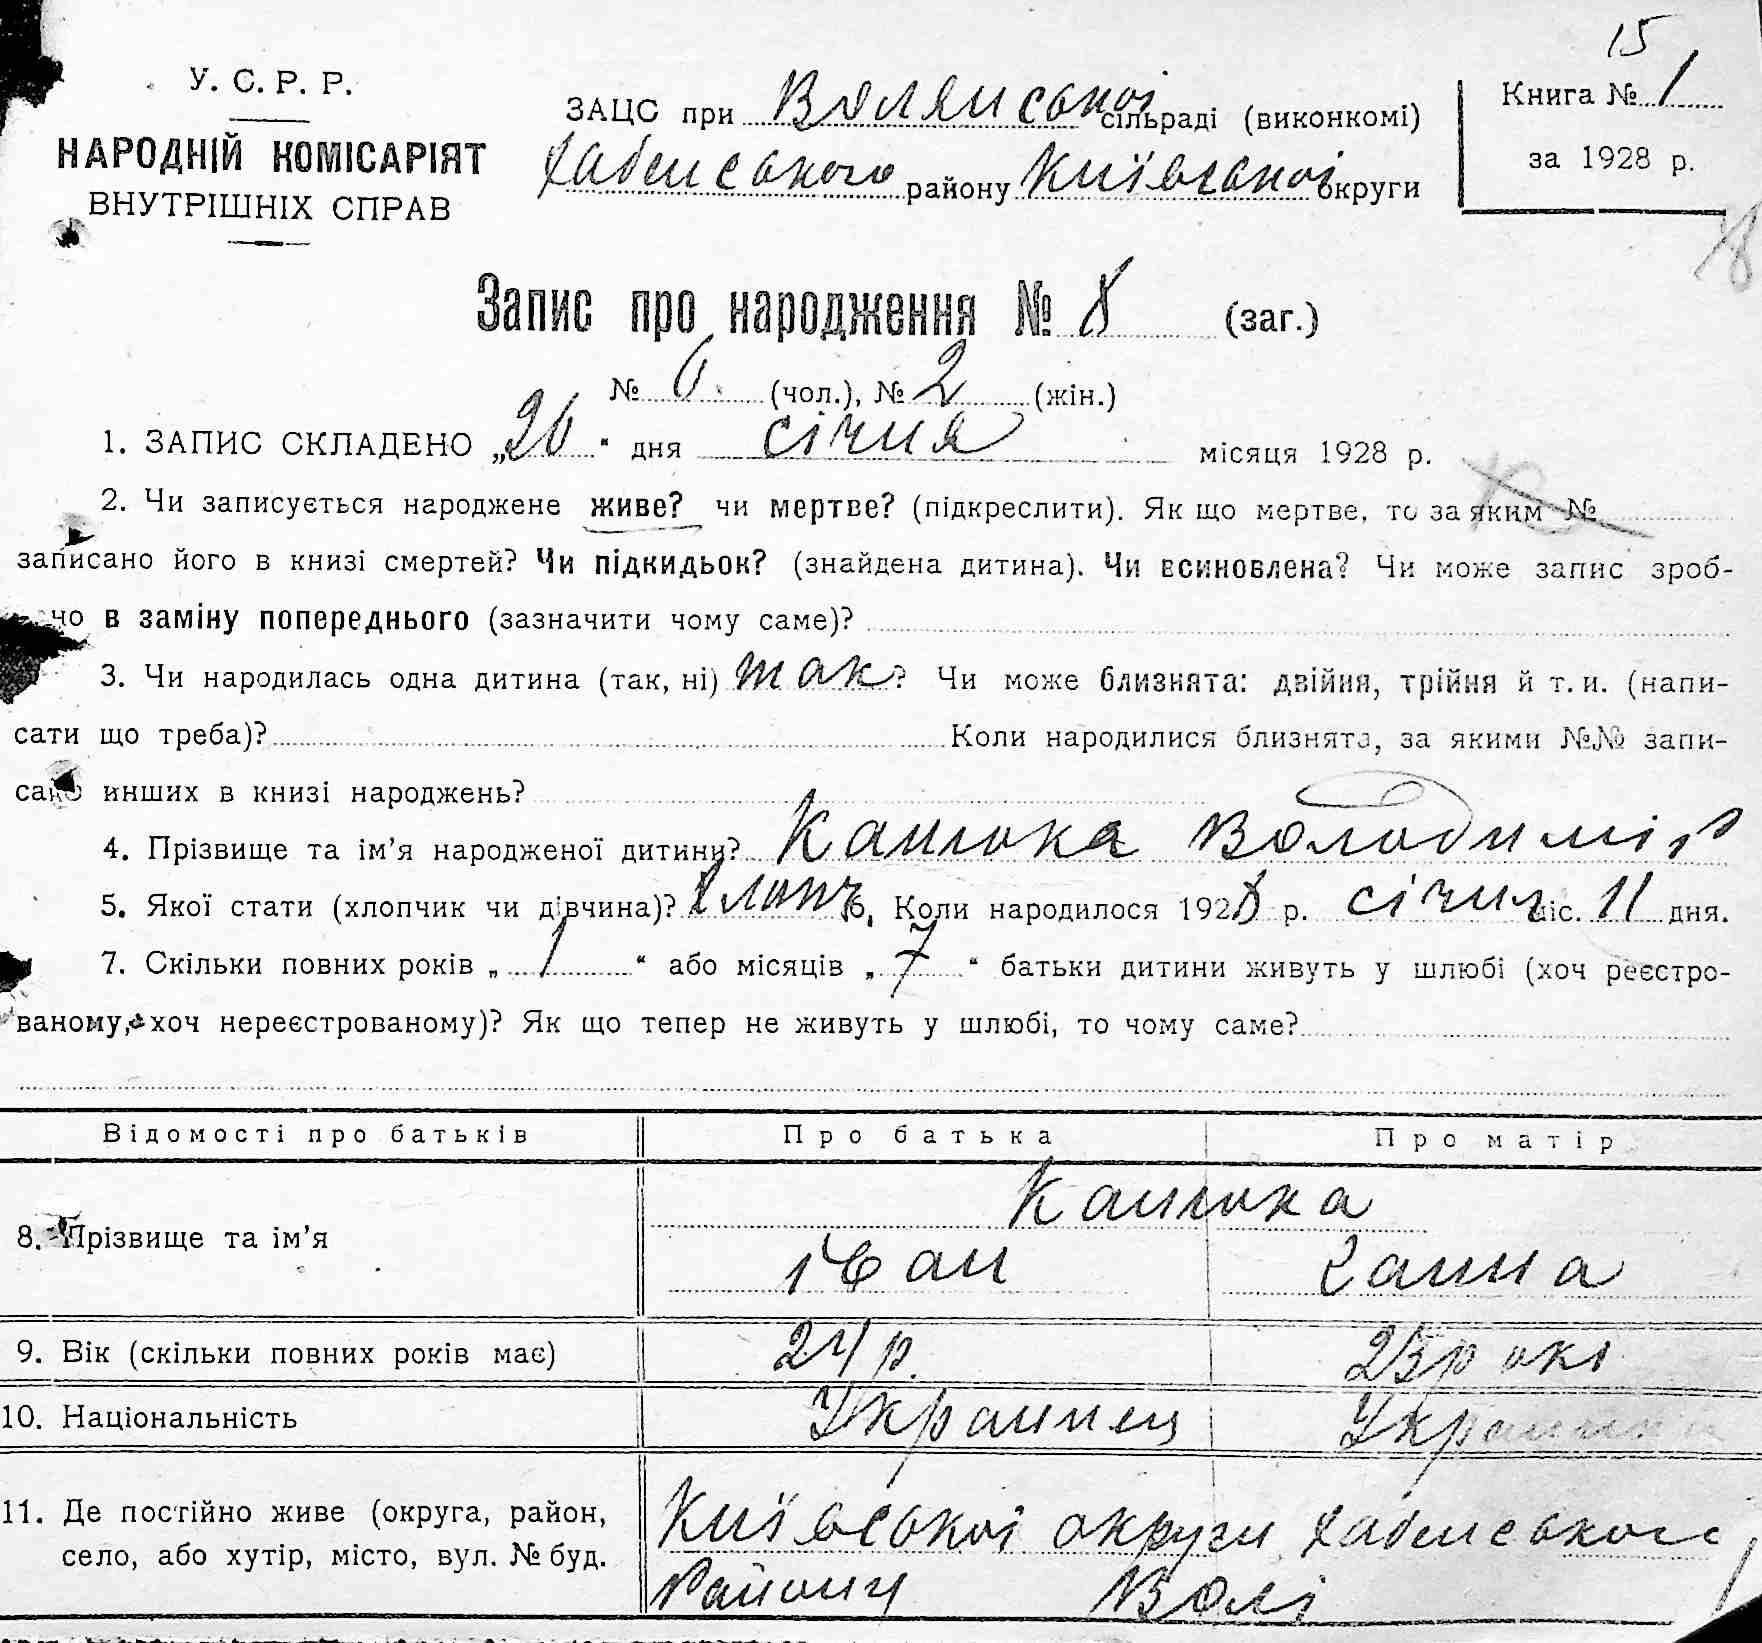 15
У. С. Р. Р.
НАРОДНІЙ КОМІСАРІЯТ
ВНУТРІШНІХ СПРАВ
ЗАЦС при Волянської сільраді (виконкомі)
Хабенського району Київської округи
Книга № 1
за 1928 р.
18
Запис про народження № 8 (заг.)
№ 6 (чол.), № 2 (жін.)
1. ЗАПИС СКЛАДЕНО „26" дня січня місяця 1928 р.
2. Чи записується народжене живе? чи мертве? (підкреслити). Як що мертве, то за яким №
записано його в книзі смертей? Чи підкидьок? (знайдена дитина). Чи всиновлена? Чи може запис зроб-
но в заміну попереднього (зазначити чому саме)?
3. Чи народилась одна дитина (так, ні) так? Чи може близнята: двійня, трійня й т. и. (напи-
сати що треба)? Коли народилися близнята, за якими №№ запи-
сано инших в книзі народжень?
4. Прізвище та ім'я народженої дитини? Канюка Володимір
5. Якої стати (хлопчик чи дівчина)? Хлопч. 6. Коли народилося 1928 р. січня міс. 11 дня.
7. Скільки повних років „ 1 " або місяців „ 7 " батьки дитини живуть у шлюбі (хоч реєстро-
ваному, хоч нереєстрованому)? Як що тепер не живуть у шлюбі, то чому саме?
Відомості про батьків Про батька Про матір
8. Прізвище та ім'я Канюка
Іван Ганна
9. Вік (скільки повних років має) 24 р. 23 рокі
10. Національність Украинец Украинка
11. Де постійно живе (округа, район,
село, або хутір, місто, вул. № буд.
Київської округи Хабенського
Району Волі